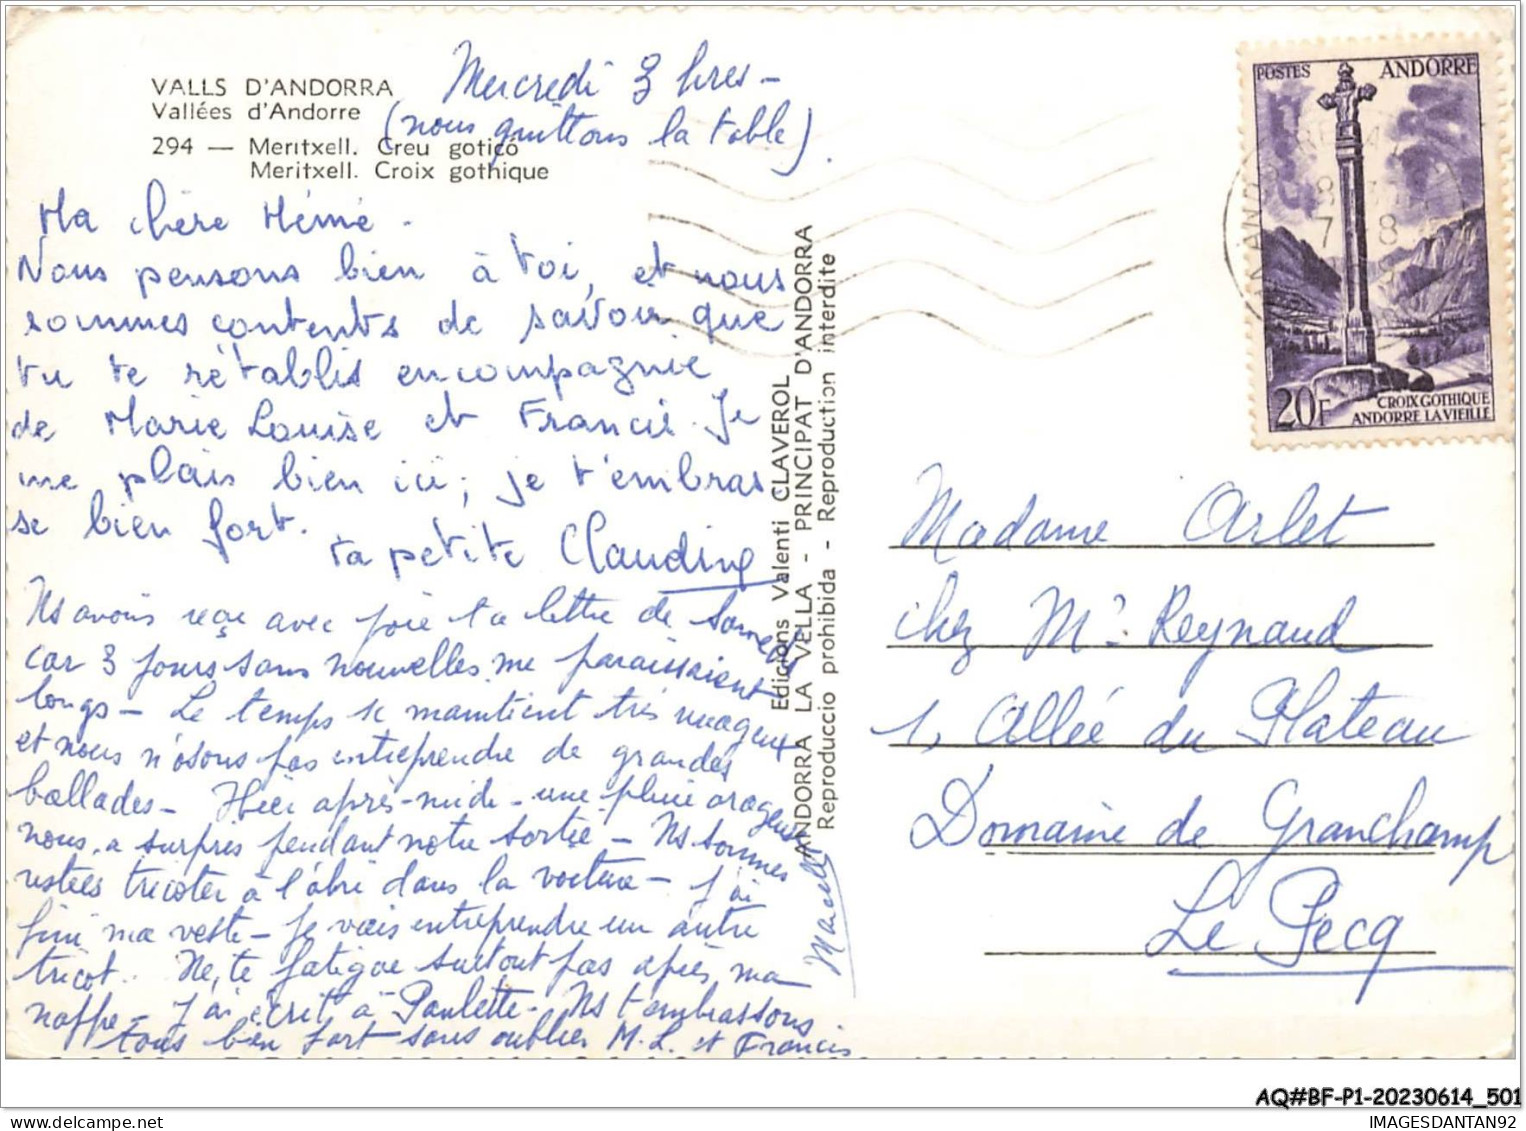 VALLS D'ANDORRA
Vallées d'Andorre
294 — Meritxell. Creu goticó
Meritxell. Croix gothique
Mercredi 3 hres -
(nous quittons la table).
Ma chère Mémé.
Nous pensons bien à toi, et nous
sommes contents de savoir que
tu te rétablis en compagnie
de Marie Louise et Francis. Je
me plais bien ici; je t'embras
se bien fort.
ta petite Claudine
Ns avons reçu avec joie ta lettre de Samedi
car 3 jours sans nouvelles me paraissaient
longs - Le temps se maintient très nuageux
et nous n'osons pas entreprendre de grandes
ballades - Hier après-midi - une pluie orageuse
nous a surpris pendant notre sortie - Ns sommes
restées tricoter à l'abri dans la voiture - J'ai
fini ma veste - Je vais entreprendre un autre
tricot. Ne te fatigue surtout pas après ma
nappe - J'ai écrit à Paulette - Ns t'embrassons
tous bien fort sans oublier M.L. et Francis
Marcelle
Edicions Valenti CLAVEROL
ANDORRA LA VELLA - PRINCIPAT D'ANDORRA
Reproduccio prohibida - Reproduction interdite
POSTES ANDORRE
7 8
20F
CROIX GOTHIQUE
ANDORRE LA VIEILLE
Madame Arlet
chez Mr Reynaud
1, Allée du Plateau
Domaine de Grandchamp
Le Pecq
AQ#BF-P1-20230614_501
IMAGESDANTAN92